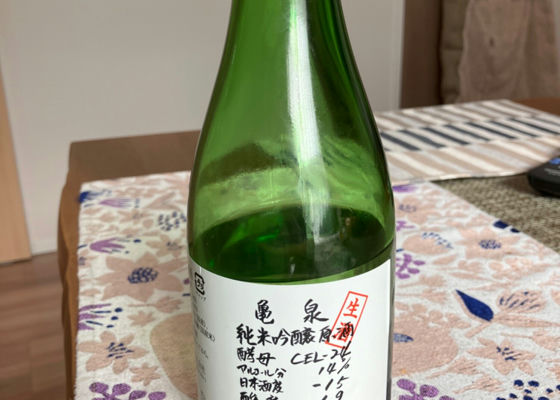 亀泉
生
純米吟醸原酒
酵母 CEL-24
アルコール分 14%
日本酒度 -15